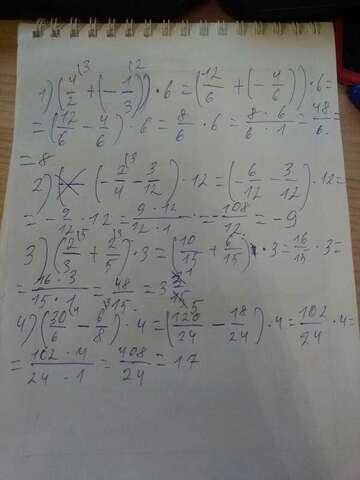 1) (4/2 (3 + (- 1/3 (2)) · 6 = (12/6 + (- 4/6)) · 6 =
= (12/6 - 4/6) · 6 = 8/6 · 6 = 8 · 6/6 · 1 = 48/6 =
= 8
2) (- 2/4 (3 - 3/12) · 12 = (6/12 - 3/12) · 12 =
= - 9/12 · 12 = 9 · 12/12 · 1 = - 108/12 = - 9
3) (2/3 (5 + 2/5 (3) · 3 = (10/15 + 6/15) · 3 = 16/15 · 3 =
= 16 · 3/15 · 1 = 48/15 = 3 1/5
4) (30/6 (4 - 6/8 (3) · 4 = (120/24 - 18/24) · 4 = 102/24 · 4 =
= 102 · 4/24 · 1 = 408/24 = 17